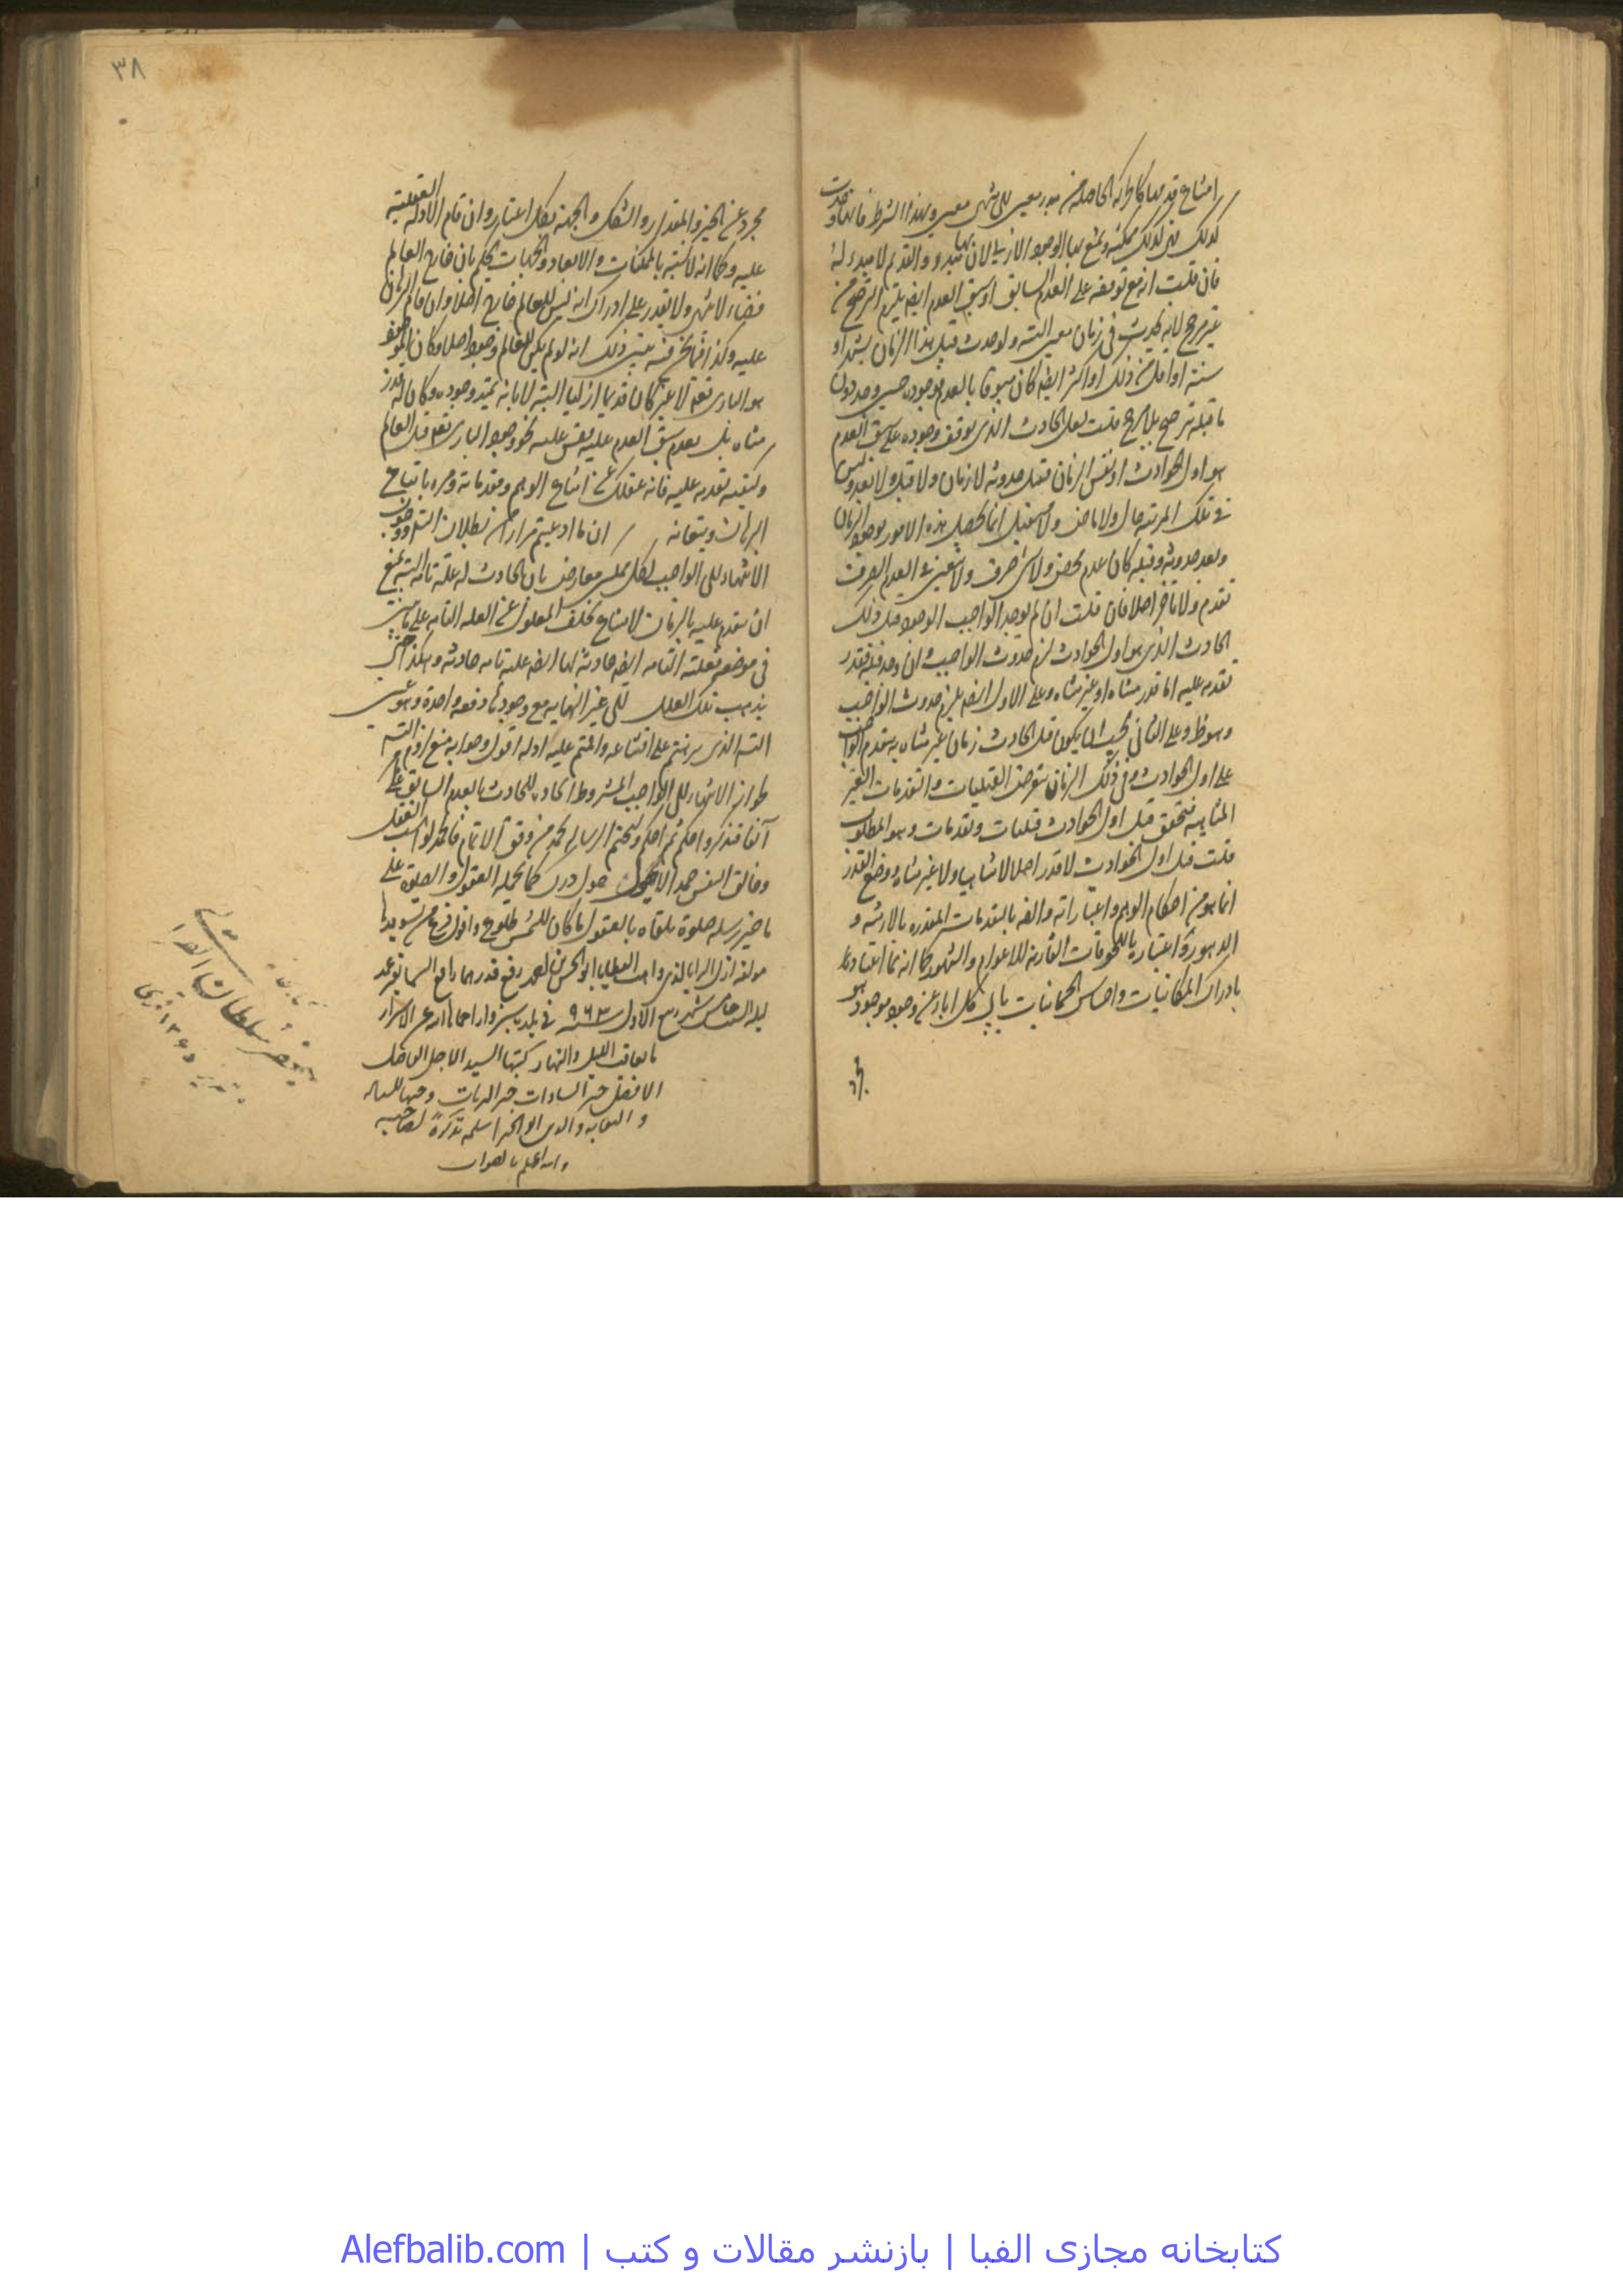 امتناع قدمها كالحركة الحاصلة من مبدء معين الى منتهى معين وبهذا الشرط فانها
كذلك ممكنة ويمتنع لها الوجود الازلى لان لها مبدء والقديم لا مبدء له
فان قلت انه مع توقفه على العدم السابق او سبق العدم ايضا يلزم الترجيح من
غير مرجح لانه يحدث فى زمان معين البتة ولو حدث قبل هذا الزمان بشهر او
سنة او اقل من ذلك او اكثر ايضا كان مسبوقا بالعدم فوجوده حين وجد دون
ما قبله ترجيح بلا مرجح قلت لعل الحادث الذى يتوقف وجوده على سبق العدم
هو اول الحوادث او نفس الزمان فقبل حدوثه لا زمان ولا قبل ولا بعد وليس
فى تلك المرتبة حال ولا ماض ولا مستقبل انما يحصل هذه الامور بوجود الزمان
وبعد حدوثه وقبله كان عدم محض ولا شىء صرف ولا يتعين فى العدم الصرف
تقدم ولا تاخر اصلا فان قلت ان لم يوجد الواجب الوجود قبل ذلك
الحادث الذى هو اول الحوادث لزم حدوث الواجب وان وجد قبله فقدر
تقدمه عليه اما قدر متناه او غير متناه وعلى الاول ايضا يلزم حدوث الواجب
وهو ظ وعلى الثانى يجب ان يكون قبل الحادث زمان غير متناه به يتقدم الواجب
على اول الحوادث وفى ذلك الزمان يتعرض القبليات والتقدمات الغير
المتناهية فتحقق قبل اول الحوادث قبليات وتقدمات وهو المطلوب
قلت قبل اول الحوادث لا قدر اصلا لا متناهيا ولا غير متناه ووضع القدر
انما هو من احكام الوهم واعتباراته والفه بالتقدمات المقدرة بالازمنة و
الدهور واعتبار
بادراك المكانيات واحساس الجسمانيات يابى كل اباء عن وجود موجود هو
مجرد
٣٨
مجرد عن الحيز والمقدار والشكل والجهة بكل اعتبار وان قام الادلة العقلية
عليه وكما انه لانسه بالممكنات والابعاد والجهات يحكم بان خارج العالم
فضاء لا ينتهى ولا يقدر على ادراك انه ليس للعالم خارج اصلا وان قام البرهان
عليه وكذا فيما نحن فيه يتبين ذلك انه لو لم يكن للعالم وجود اصلا وكان الموجود
هو البارى تعالى لا غير كان قديما ازليا البتة لا بانه يمتد وجوده وكان له قدر
متناه بل بعدم سبق العدم عليه فقس عليه نحو وجود البارى تعالى قبل العالم
وكيفية تقدمه عليه فانه عقلك عن اتباع الوهم ومقدماته ومره باتباع
البرهان ويقيناته ان ما ادعيتم قرارا من بطلان التس ووجوب
الانتهاء الى الواجب لكل ممكن معارض بان الحادث له علة تامة البتة يمتنع
ان يتقدم عليه بالزمان لامتناع تخلف المعلول عن العلة التامة على ما بين
فى موضعه فعلته التامة ايضا حادثة لها ايضا علية تامة حادثة وهكذا حتى
يذهب تلك العلل الى غير النهاية مع وجودها دفعة واحدة وهو عين
التس الذى برهنتم على امتناعه واقمتم عليه ادلة اقول وجوابه منع لزوم التس
لجواز الانتهاء الى الواجب المشروط ايجاده للحادث بالعدم السابق على
آنفا فتذكروا حكم ثم احكم ولنختم الرسالة بحمد من وفق الاتمام فالحمد لواهب العقل
وفالق النفس حمدا لا يحول حول درك كما يحمله العقول والصلوة على
ما خير رسله صلوة يلقاه بالعقول ما كان للشمس طلوع وافول فرغ من تسويدها
مولفه اذل البرايا لدى واهب العطايا ابو الحسن بن احمد رفع قدرهما رافع السماء بغير عمد
ليلة السبت خامس شهر ربيع الاول سنة ٩٦٣ فى بلدة سبزوار احماها الله عن الاشرار
ما تعاقب الليل والنهار كتبها السيد الاجل الفاضل
الافضل خير السادات
والدين ابو الخير اسلمه تذكرة لصاحبه
والله اعلم بالصواب
جعفر سلطان القرا
تبريز ١٣٤٥ قمرى
كتابخانه مجازی الفبا | بازنشر مقالات و کتب | Alefbalib.com